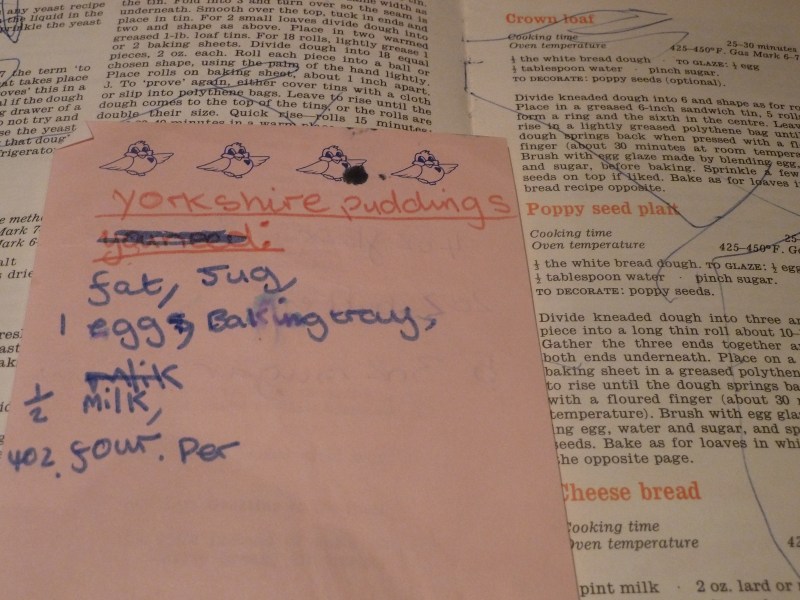 any yeast recipe
the liquid in the
sprinkle the yeast
7 the term 'to
at takes place
oves' this in a
al if the dough
g drawer of a
o not try and
se the yeast
that doug
frigerato
e metho
Mark 7
ark 6
alt
s drie
the tin. Fold into 3 and turn over so the seam is
underneath. Smooth over the top, tuck in ends and
place in tin. For 2 small loaves divide dough into
two and shape as above. Place in two warmed
greased 1-lb. loaf tins. For 18 rolls, lightly grease 1
or 2 baking sheets. Divide dough into 18 equal
pieces, 2 oz. each. Roll each piece into a ball or
chosen shape, using the palm of the hand lightly.
Place rolls on baking sheet, about 1 inch apart.
3. To 'prove' again, either cover tins with a cloth
or slip into polythene bags. Leave to rise until the
dough comes to the top of the tins, or the rolls are
double their size. Quick rise—rolls 15 minutes
yorkshire puddings
you need:
fat, Jug,
1 eggs, Baking tray,
milk
½ milk,
4oz. four. Per
Crown loaf
Cooking time 25–30 minutes
Oven temperature 425–450°F. Gas Mark 6–7
½ the white bread dough TO GLAZE: ½ egg
½ tablespoon water · pinch sugar.
TO DECORATE: poppy seeds (optional).
Divide kneaded dough into 6 and shape as for ro
Place in a greased 6-inch sandwich tin, 5 rolls
form a ring and the sixth in the centre. Leav
rise in a lightly greased polythene bag until
dough springs back when pressed with a fl
finger (about 30 minutes at room tempera
Brush with egg glaze made by blending egg,
and sugar, before baking. Sprinkle a few
seeds on top if liked. Bake as for loaves i
bread recipe opposite.
Poppy seed plait
Cooking time 25
Oven temperature 425–450°F. G
½ the white bread dough. TO GLAZE: ½ egg
½ tablespoon water · pinch sugar.
TO DECORATE: poppy seeds.
Divide kneaded dough into three an
piece into a long thin roll about 10–
Gather the three ends together a
both ends underneath. Place on a
baking sheet in a greased polythen
to rise until the dough springs ba
with a floured finger (about 30
temperature). Brush with egg gla
ng egg, water and sugar, and sp
seeds. Bake as for loaves in whi
he opposite page.
Cheese bread
Cooking time
Oven temperature 42
pint milk · 2 oz. lard or